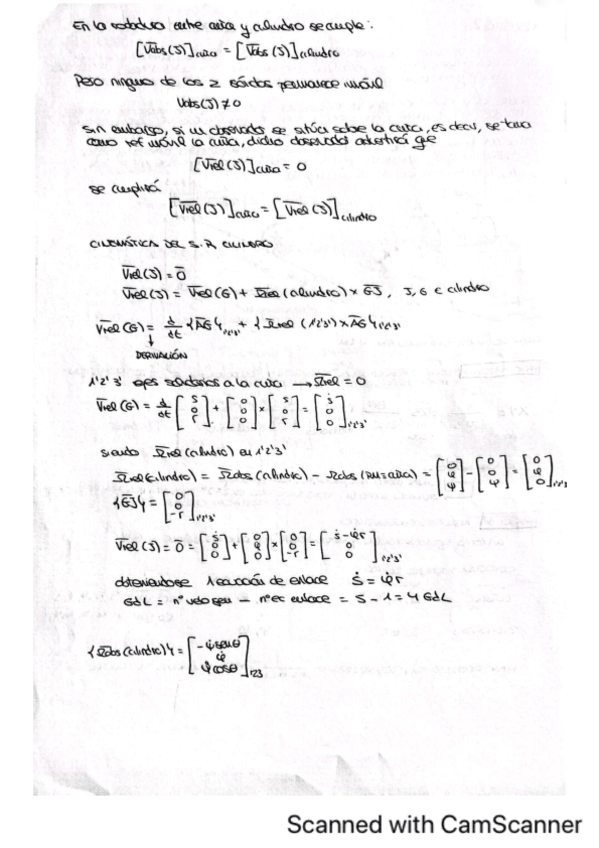 En la rodadura entre cuña y cilindro se cumple:
[V̄abs(J)]cuña = [V̄abs(J)]cilindro
Pero ninguno de los 2 sólidos permanece inmóvil
Vabs(J) ≠ 0
Sin embargo, si un observador se sitúa sobre la cuña, es decir, se toma
como ref móvil la cuña, dicho observador advertirá que
[V̄rel(J)]cuña = 0
se cumplirá
[V̄rel(J)]cuña = [V̄rel(J)]cilindro
CINEMÁTICA DEL S.R CILINDRO
V̄rel(J) = 0̄
V̄rel(J) = V̄rel(G) + Ω̄rel(cilindro) × ḠJ, J, G ∈ cilindro
V̄rel(G) = d/dt {ĀG}1'2'3' + {Ω̄rel (1'2'3') × ĀG}1'2'3'
↓
DERIVACIÓN
1'2'3' ejes solidarios a la cuña → Ω̄rel = 0
V̄rel(G) = d/dt [s 0 r] + [0 0 0] × [s 0 r] = [ṡ 0 0]1'2'3'
siendo Ω̄rel(cilindro) en 1'2'3'
Ω̄rel(cilindro) = Ω̄abs(cilindro) - Ωabs(RM=cuña) = [0 φ̇ ψ̇] - [0 0 ψ̇] = [0 φ̇ 0]1'2'3'
{ḠJ} = [0 0 -r]1'2'3'
V̄rel(J) = 0̄ = [ṡ 0 0] + [0 φ̇ 0] × [0 0 -r] = [ṡ-φ̇r 0 0]1'2'3'
obteniendose 1 ecuación de enlace ṡ = φ̇r
GdL = nº velo gen - nº ec enlace = 5 - 1 = 4 GdL
{Ω̄abs(cilindro)} = [-ψ̇senθ φ̇ ψ̇cosθ]123
Scanned with CamScanner